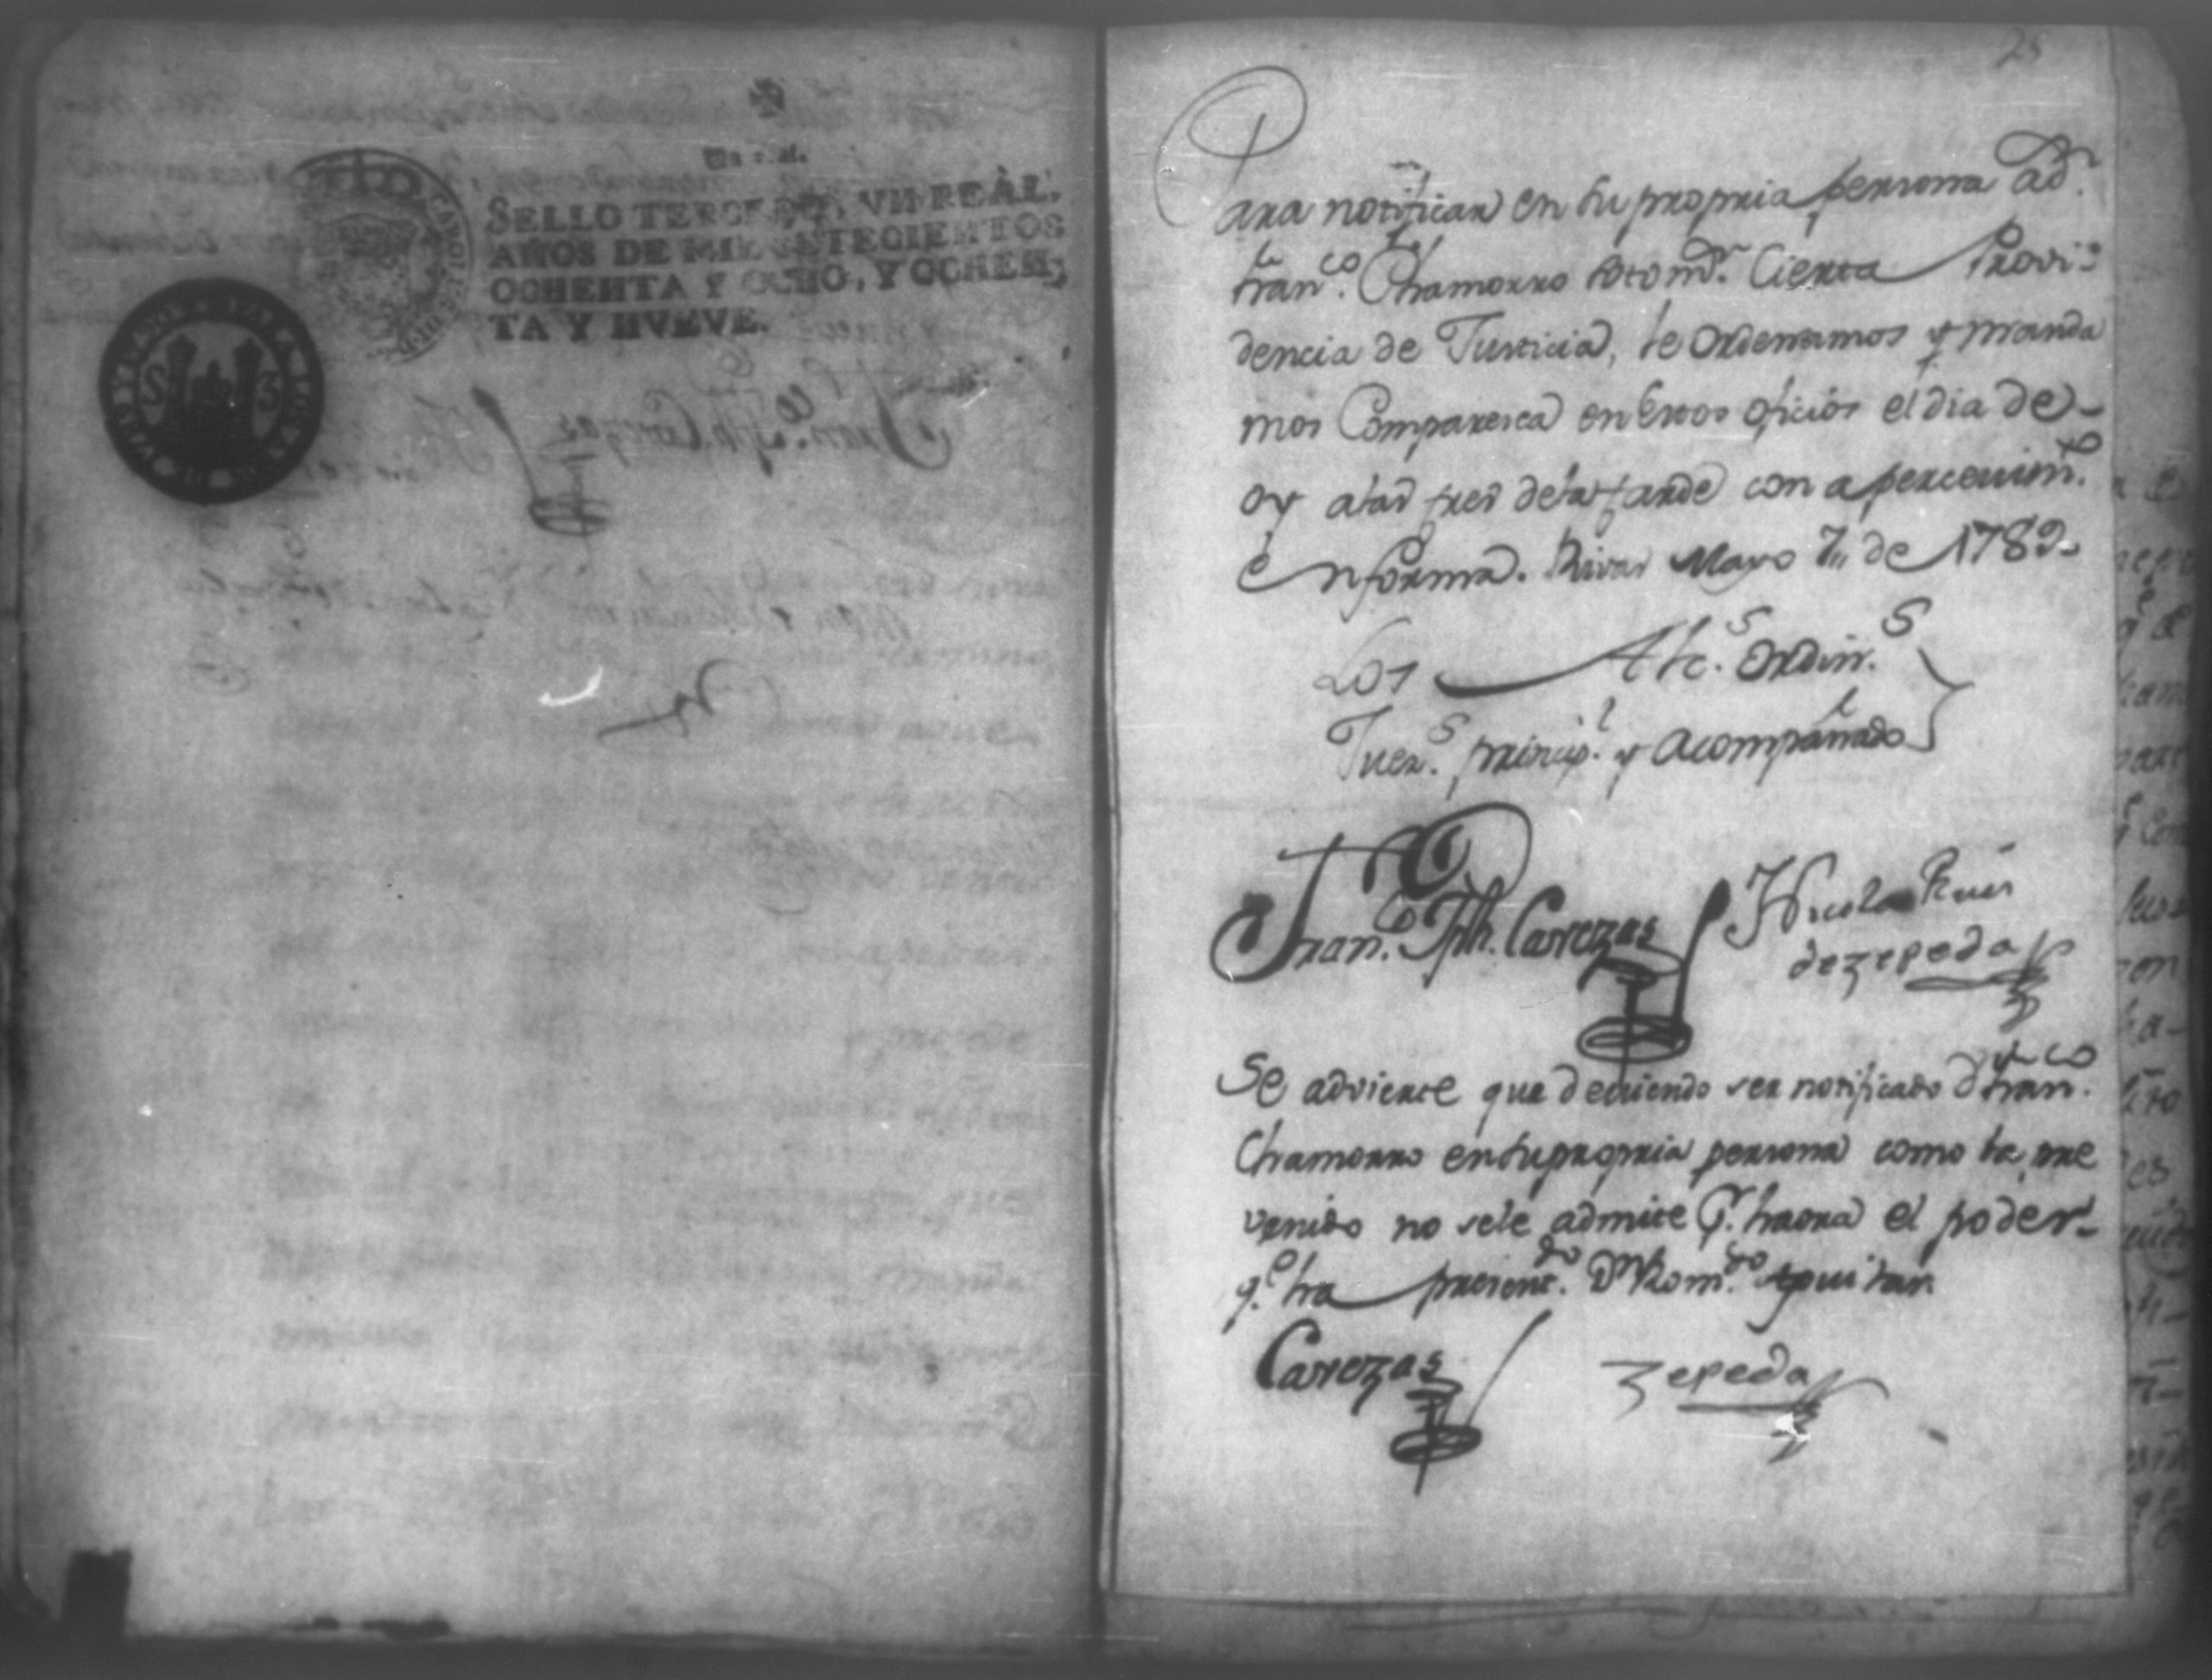 SELLO TERCERO, VN REAL,
AÑOS DE MIL SETECIENTOS
OCHENTA Y OCHO, Y OCHEN-
TA Y NUEVE.
25
Para notificar en su propria persona a Dn.
Franco. Chamorro Sotomr. Cierta Provi-
dencia de Justicia, le ordenamos y manda
mos Comparesca en Estos oficios el dia de
oy a las tres de la tarde con apercevimto.
en forma. Rivas Mayo 7,, de 1789.
Los Alcs. Ordins.
Juezs. principl. y Acompañado
Franco. Jph. Cavezas
Nicolas Ruis
de zepeda
Se advierte que deviendo ser notificado Dn. Franco.
Chamorro en su propria persona como se pre
venido no se le admite pr. haora el poder
qe. ha presentdo. Dn. Romdo. Aguilar.
Cavezas
zepeda